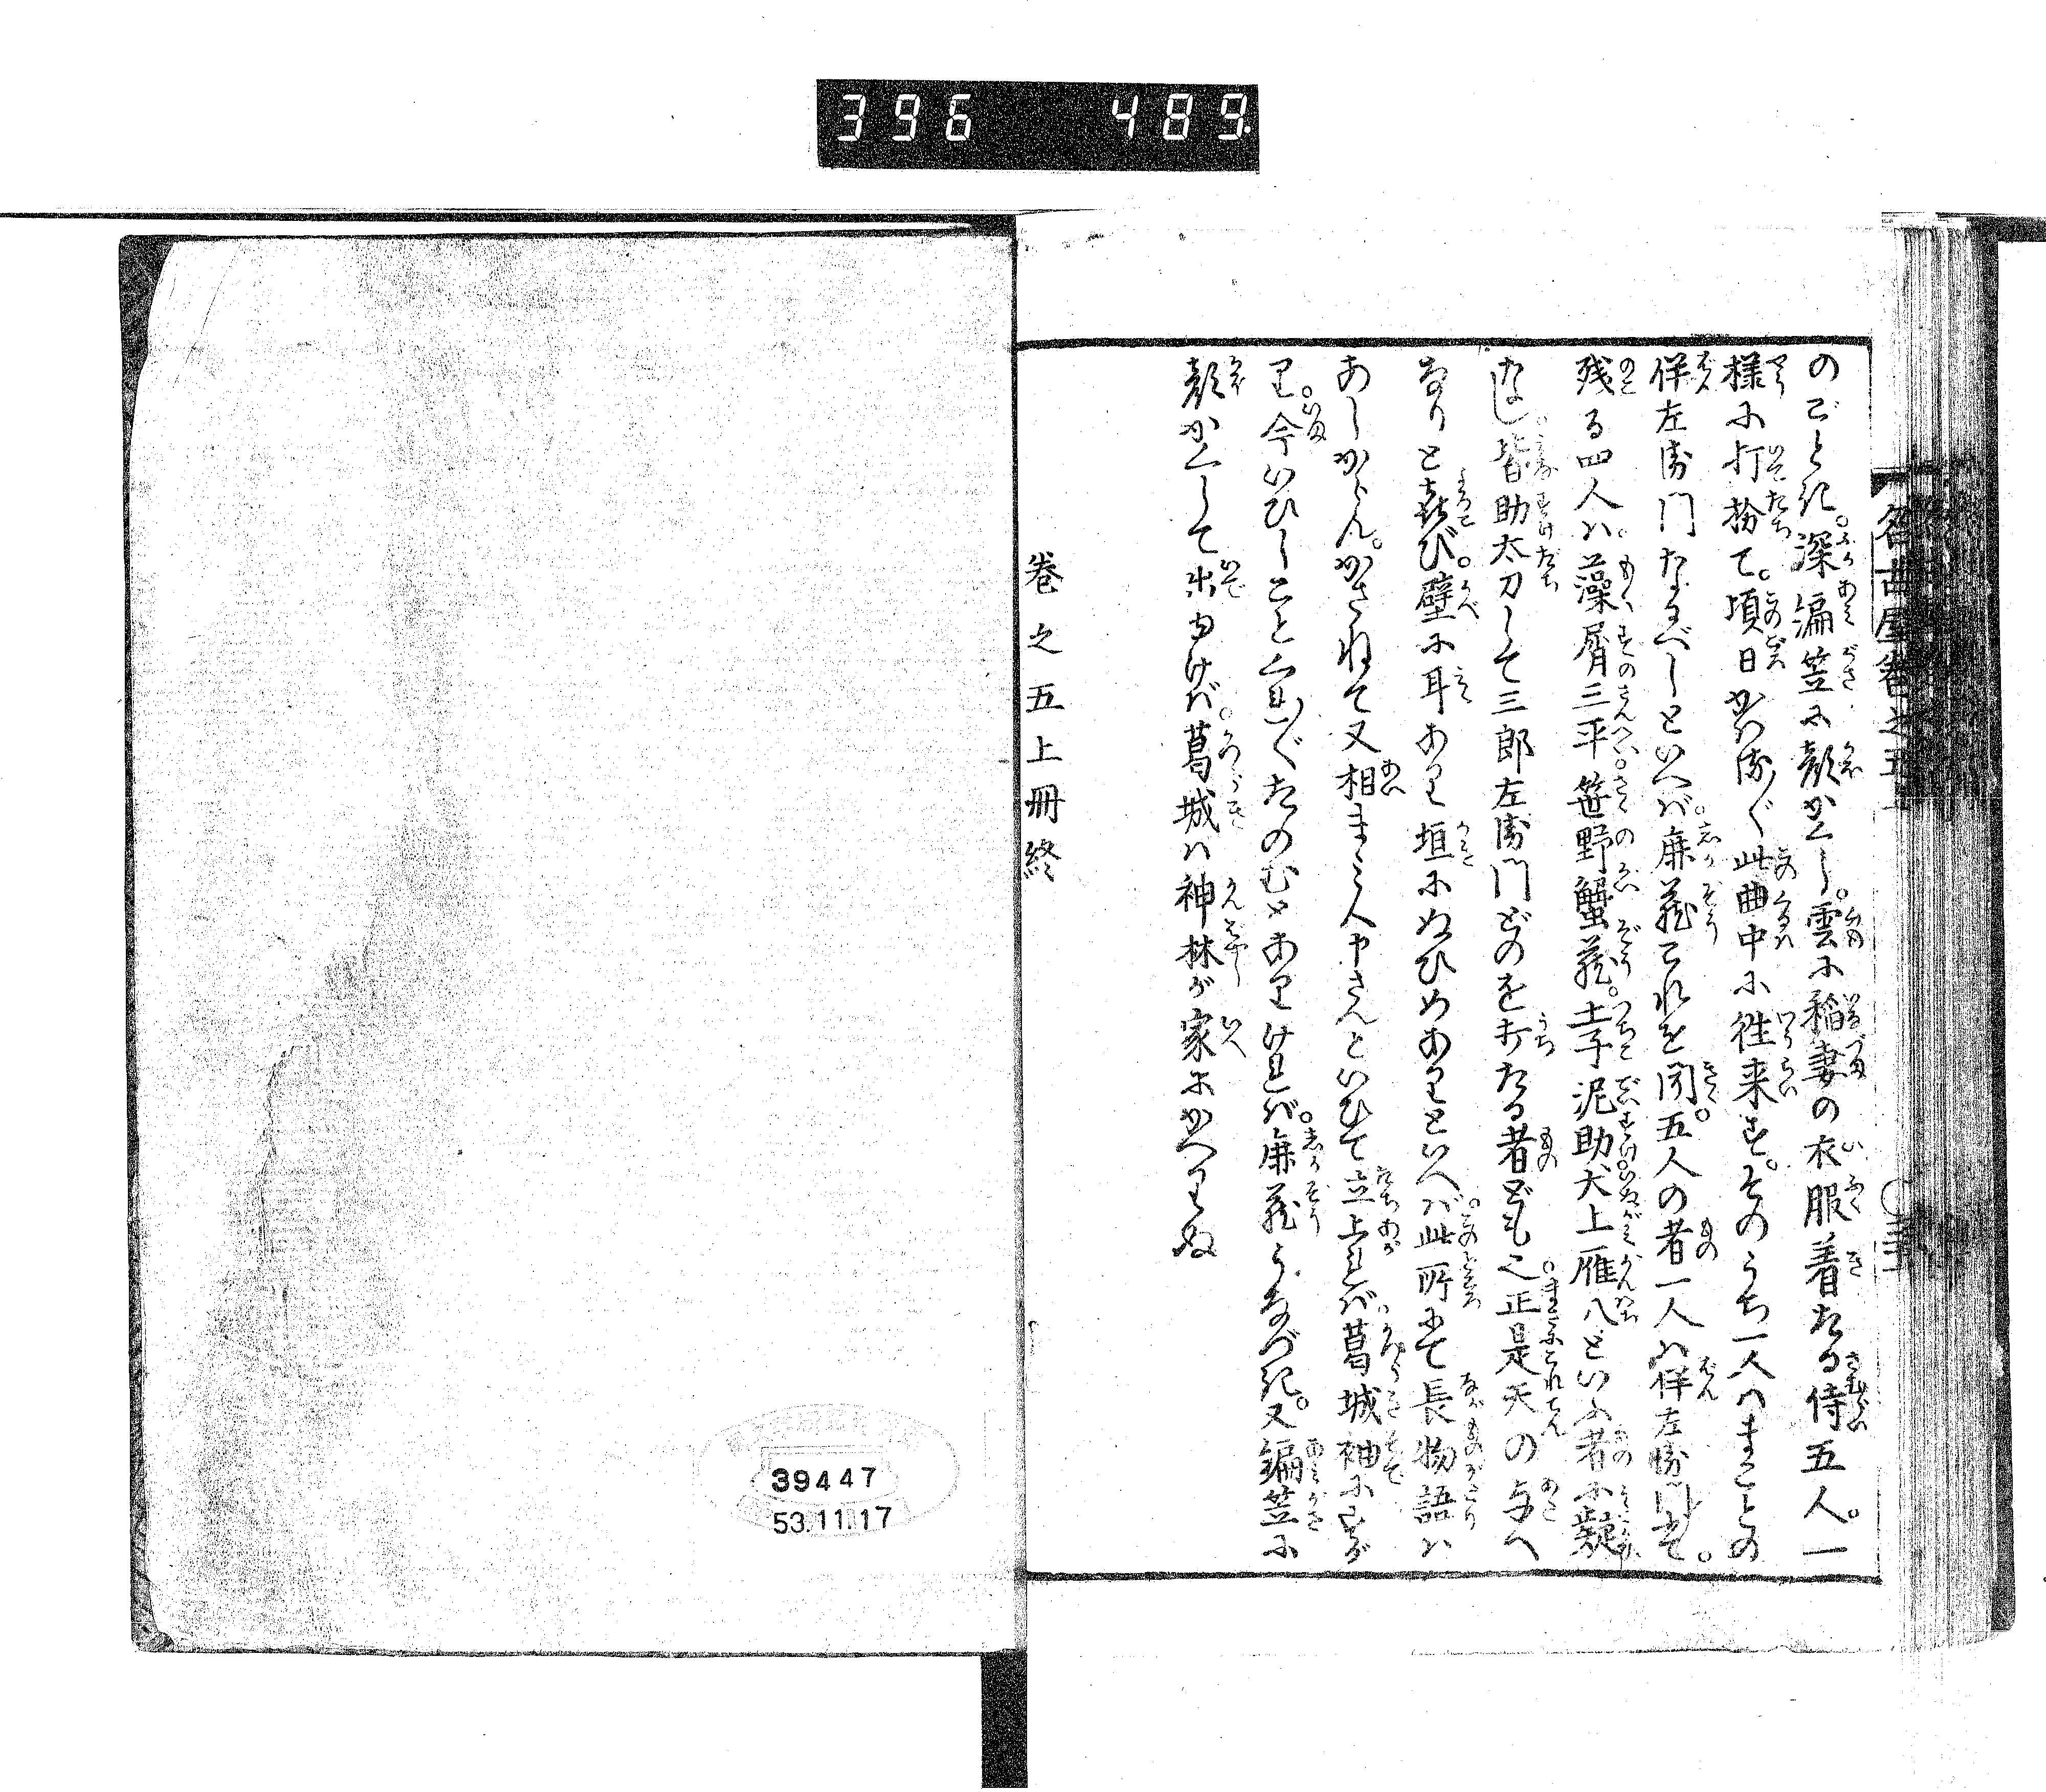 396 489.
名古屋巻之五
のごとき。深編笠に顔かくし。雲に稲妻の衣服着たる侍五人。一
様に打扮て。頃日かはる〴〵此曲中に徃来す。そのうち一人はまことの
伴左衛門なるべしといへば。鹿蔵これを聞。五人の者一人は伴左衛門にて。
残る四人は。藻屑三平。笹野蟹蔵。土子泥助。犬上雁八といふ者に疑
なし。皆助太刀して三郎左衛門どのを打たる者ども也。正是天の与へ
なりと喜び。壁に耳あり垣にぬひめありといへば。此所にて長物語は
あしからん。かさねて又相まみへ申さんといひて立上れば。葛城袖にすが
り。今いひしことくれ〴〵たのむとありければ。鹿蔵うなづき。又編笠に
顔かくして出ゆけば。葛城は神林が家にかへりぬ
巻之五上冊終
39447
53.11.17